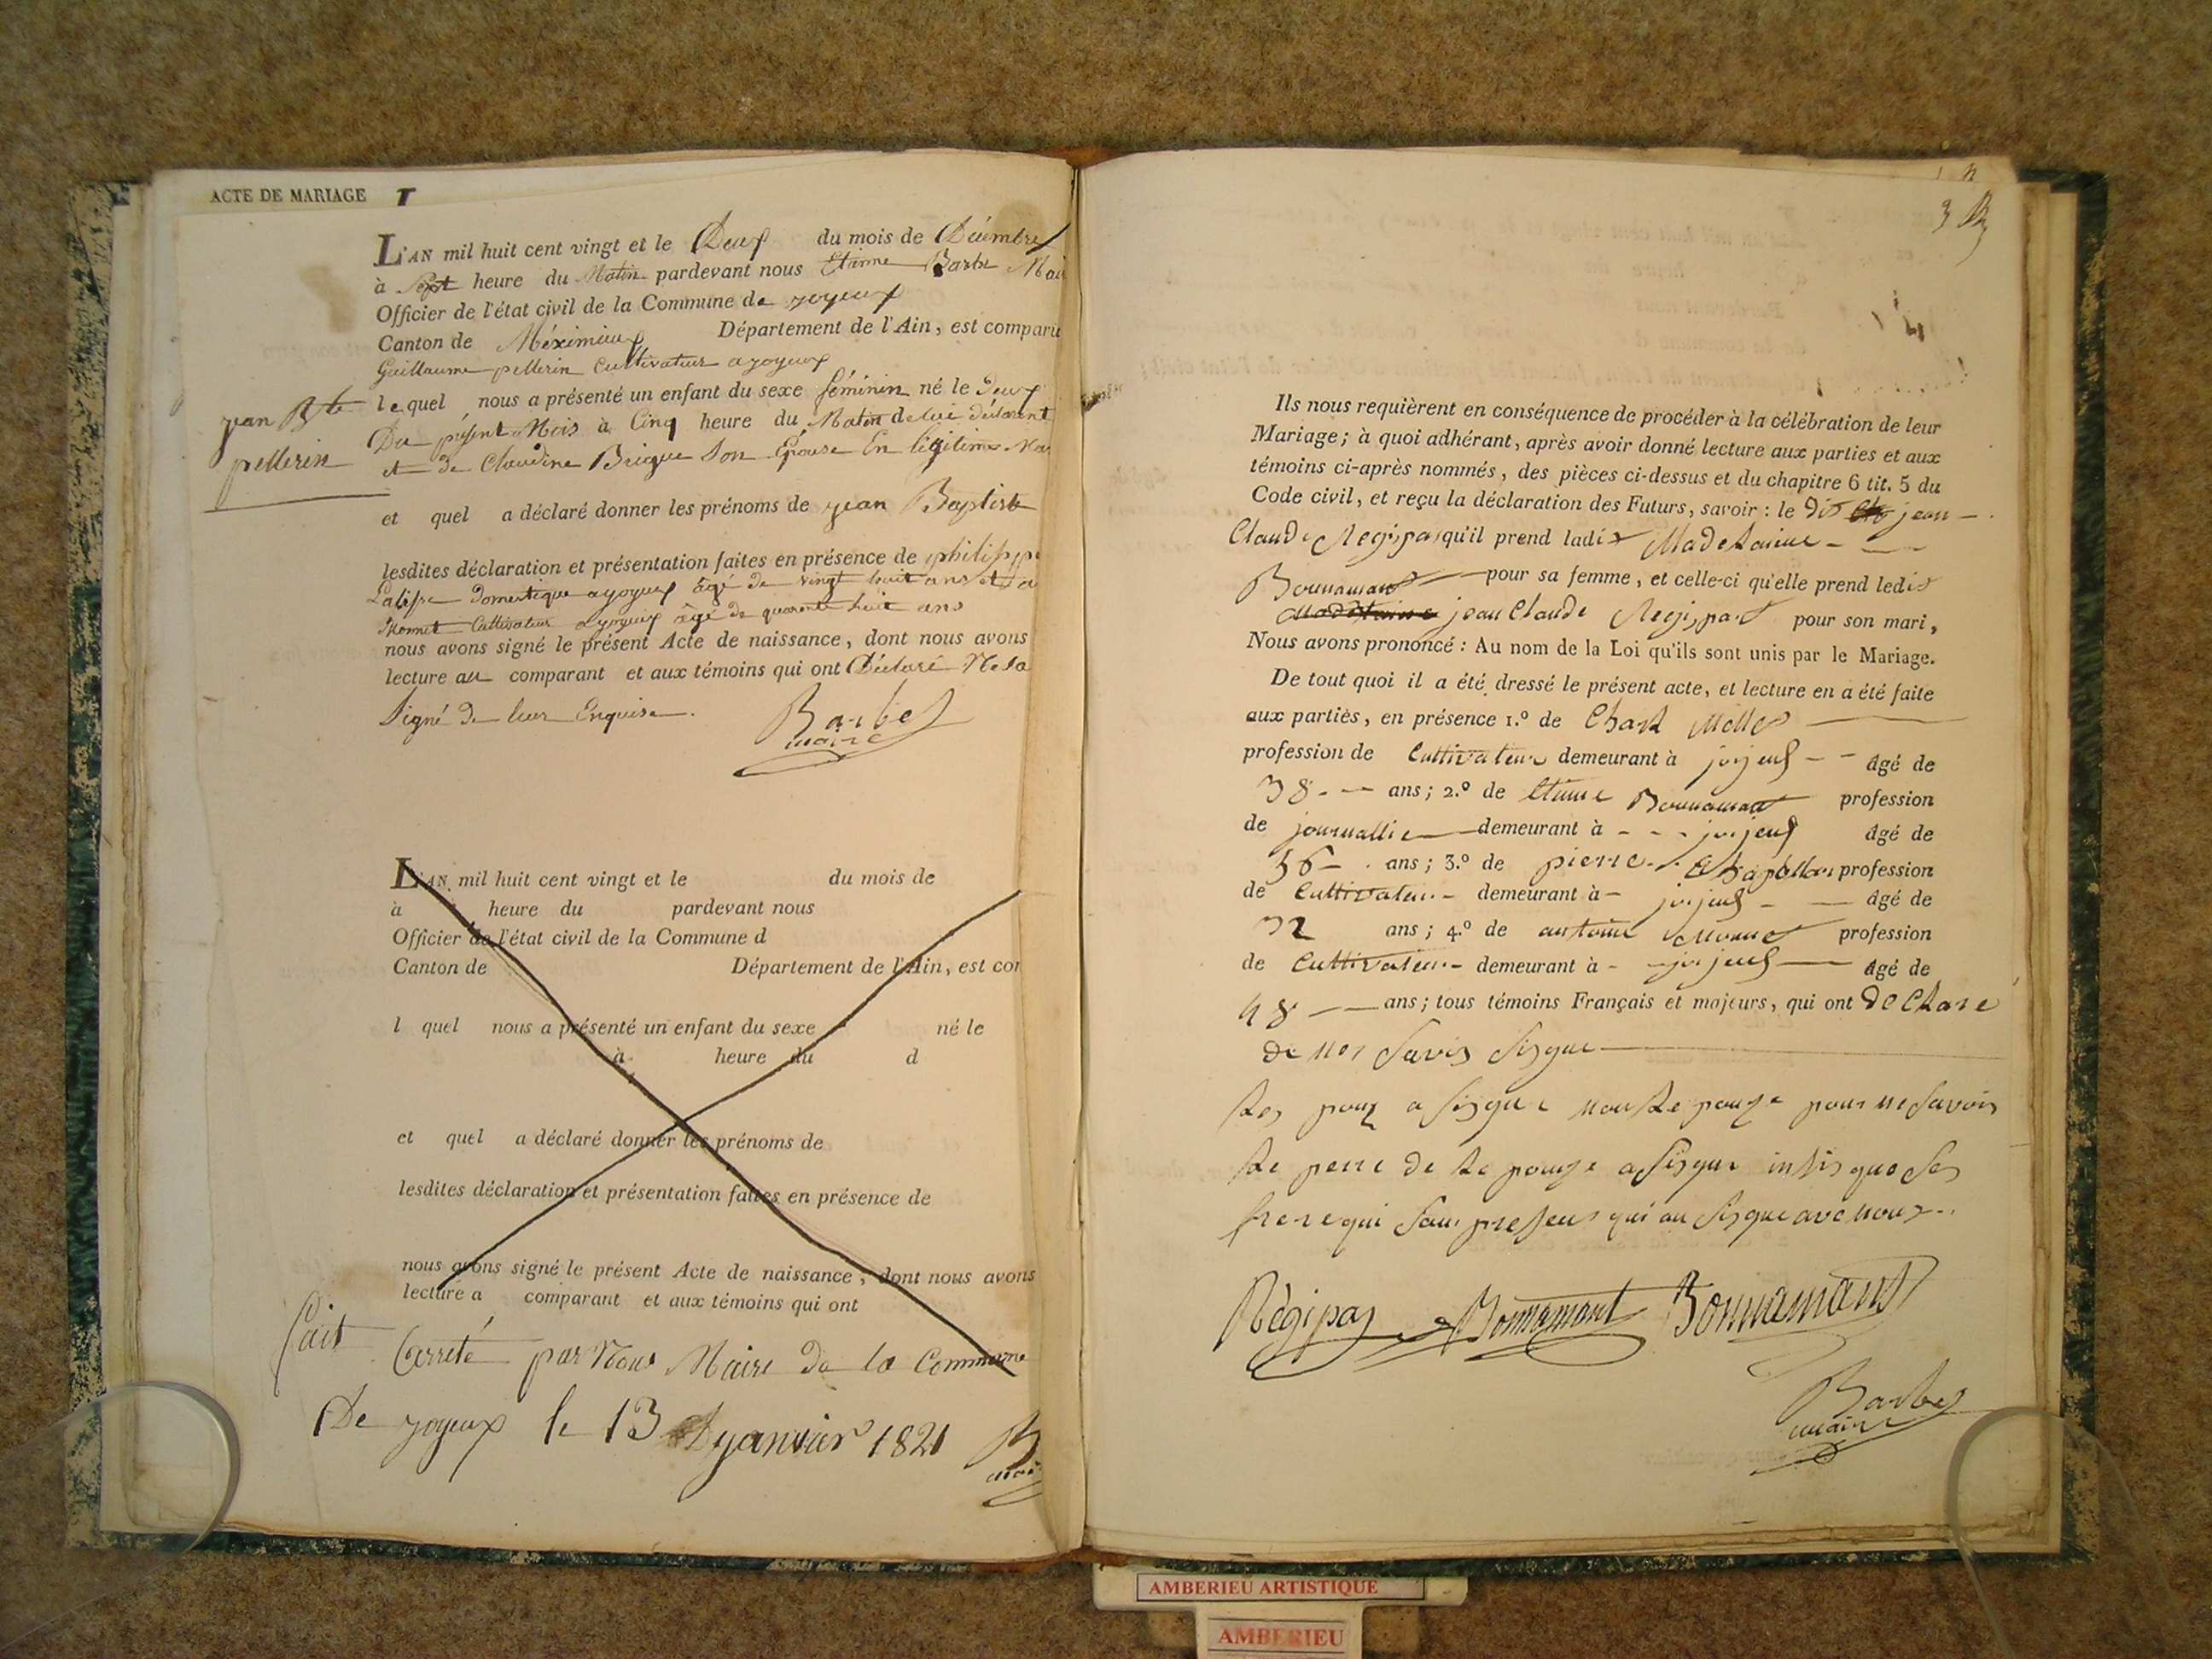 ACTE DE MARIAGE
L'AN mil huit cent vingt et le Deux du mois de Décembre
à Sept heure du Matin pardevant nous Etienne Barbe Mai
Officier de l'état civil de la Commune de joyeux
Canton de Méximieux Département de l'Ain, est comparu
Guillaume pellerin Cultivateur a joyeux
lequel nous a présenté un enfant du sexe féminin né le Deux
Du présent Mois à Cinq heure du Matin de lui déclarant
et de Claudine Brigue Son Epouse En légitime
jean Bte
pellerin
et quel a déclaré donner les prénoms de jean Baptiste
lesdites déclaration et présentation faites en présence de philippe
Domestique a joyeux âgé de vingt huit ans et
Monnet Cultivateur a joyeux âgé de quarente huit ans
nous avons signé le présent Acte de naissance, dont nous avons
lecture au comparant et aux témoins qui ont Déclaré Ne sa
Signé de leur Enquise.
Barbe
maire
L'AN mil huit cent vingt et le du mois de
à heure du pardevant nous
Officier de l'état civil de la Commune d
Canton de Département de l'Ain, est com
l quel nous a présenté un enfant du sexe né le
à heure du d
et quel a déclaré donner les prénoms de
lesdites déclaration et présentation faites en présence de
nous avons signé le présent Acte de naissance, dont nous avons
lecture a comparant et aux témoins qui ont
fait Carreté par Nous Maire de la Commune
De joyeux le 13 janvier 1821
3
Ils nous requièrent en conséquence de procéder à la célébration de leur
Mariage; à quoi adhérant, après avoir donné lecture aux parties et aux
témoins ci-après nommés, des pièces ci-dessus et du chapitre 6 tit. 5 du
Code civil, et reçu la déclaration des Futurs, savoir: le dit jean
Claude Regipas qu'il prend ladit Madelaine
Bonnamant pour sa femme, et celle-ci qu'elle prend ledit
Madelaine jean Claude Regipas pour son mari,
Nous avons prononcé: Au nom de la Loi qu'ils sont unis par le Mariage.
De tout quoi il a été dressé le présent acte, et lecture en a été faite
aux partiès, en présence 1.º de Charle
profession de Cultivateur demeurant à joijeus âgé de
38 ans; 2.º de Etinne Bonnamant profession
de journallie demeurant à joijeus âgé de
36 ans; 3.º de pierre profession
de Cultivateur demeurant à joijeus âgé de
32 ans; 4.º de antoine Monnet profession
de Cultivateur demeurant à joijeus âgé de
48 ans; tous témoins Français et majeurs, qui ont de Clare
de nes Savis Sisgne
Les pouz a sisgne non Le pouze pour ne savoir
Le perre de Le pouze a sisgne insis que ses
frere qui sont present qui on sisgne ave nous
Régipas Bonnamant Bonnamant
Barbe
maire
AMBERIEU ARTISTIQUE
AMBERIEU